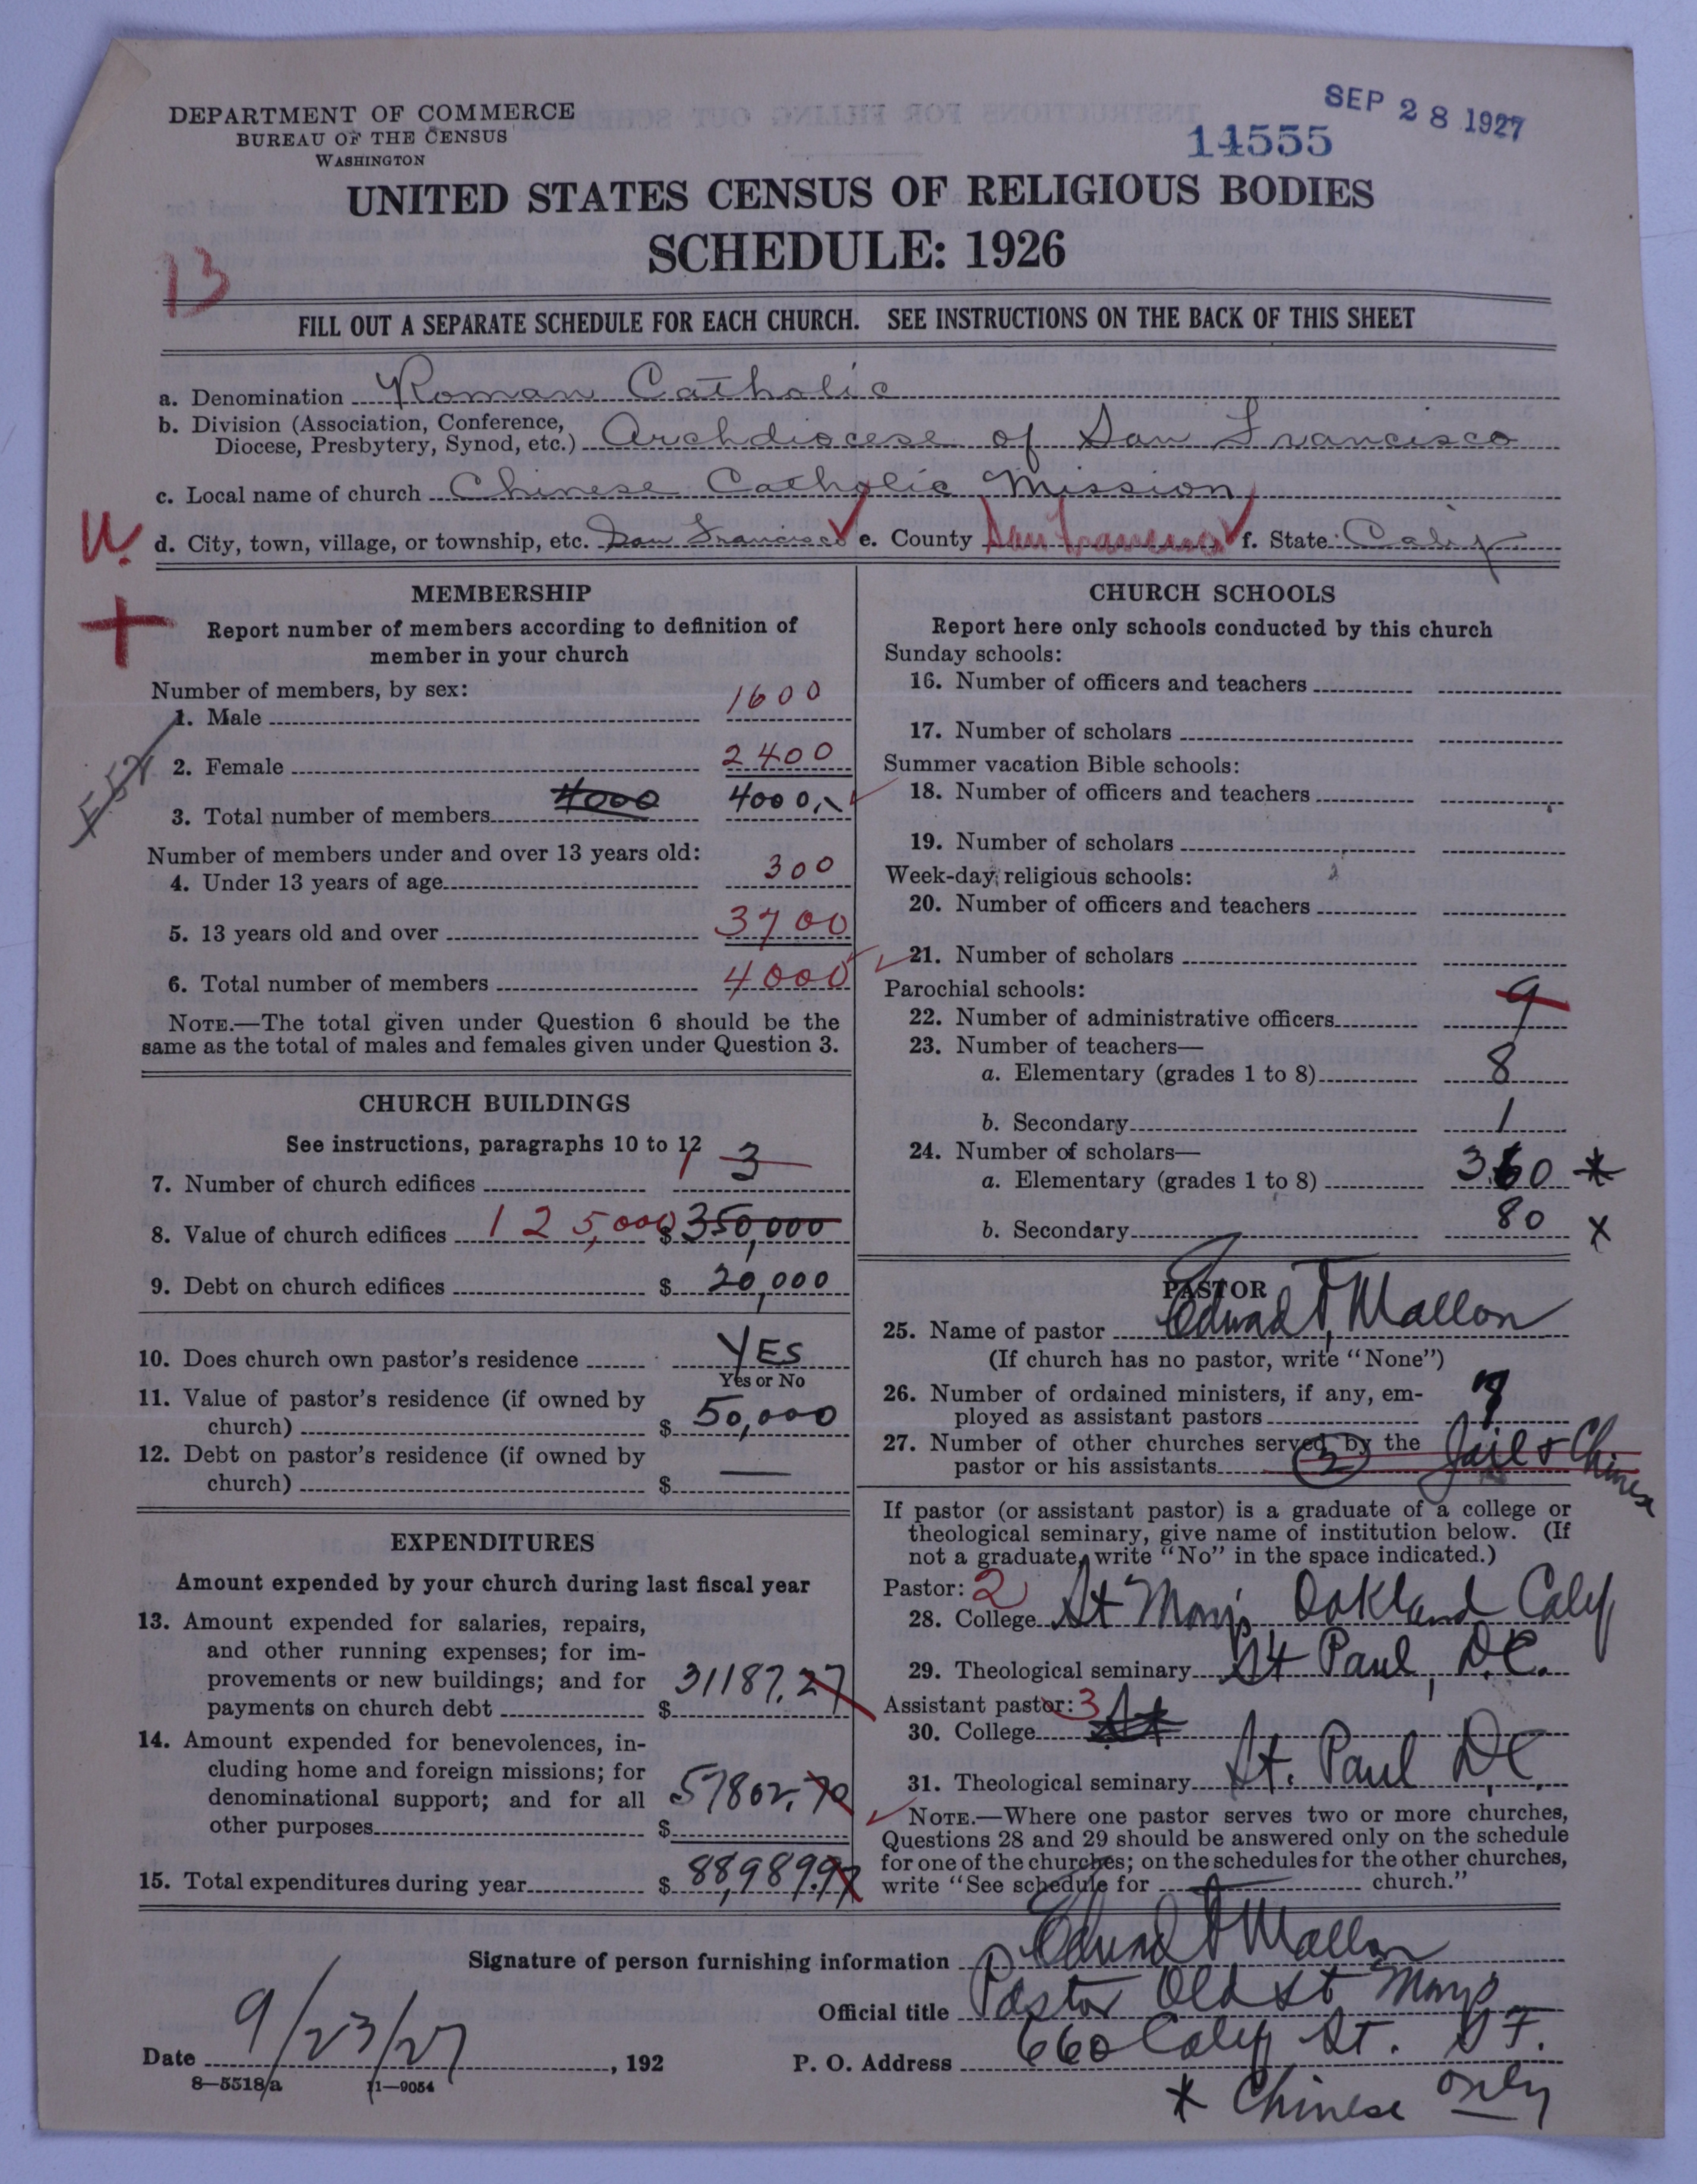 DEPARTMENT OF COMMERCE
BUREAU OF THE CENSUS
WASHINGTON
SEP 28 1927
14555
UNITED STATES CENSUS OF RELIGIOUS BODIES
SCHEDULE: 1926
13
FILL OUT A SEPARATE SCHEDULE FOR EACH CHURCH. SEE INSTRUCTIONS ON THE BACK OF THIS SHEET
a. Denomination Roman Catholic
b. Division (Association, Conference,
Diocese, Presbytery, Synod, etc.) Archdiocese of San Francisco
c. Local name of church Chinese Catholic Mission
d. City, town, village, or township, etc. San Francisco e. County San Francisco f. State: Calif
MEMBERSHIP
Report number of members according to definition of
member in your church
Number of members, by sex:
1. Male 1600
2. Female 2400
3. Total number of members 4000 4000
Number of members under and over 13 years old:
4. Under 13 years of age 300
5. 13 years old and over 3700
6. Total number of members 4000
NOTE.—The total given under Question 6 should be the
same as the total of males and females given under Question 3.
CHURCH BUILDINGS
See instructions, paragraphs 10 to 12
7. Number of church edifices 1 3
8. Value of church edifices 125,000 $ 350,000
9. Debt on church edifices $ 20,000
10. Does church own pastor's residence YES
Yes or No
11. Value of pastor's residence (if owned by
church) $ 50,000
12. Debt on pastor's residence (if owned by
church) $ —
EXPENDITURES
Amount expended by your church during last fiscal year
13. Amount expended for salaries, repairs,
and other running expenses; for im-
provements or new buildings; and for
payments on church debt $ 31187.27
14. Amount expended for benevolences, in-
cluding home and foreign missions; for
denominational support; and for all
other purposes $ 57802.70
15. Total expenditures during year $ 88,989.97
CHURCH SCHOOLS
Report here only schools conducted by this church
Sunday schools:
16. Number of officers and teachers
17. Number of scholars
Summer vacation Bible schools:
18. Number of officers and teachers
19. Number of scholars
Week-day religious schools:
20. Number of officers and teachers
21. Number of scholars
Parochial schools:
22. Number of administrative officers 9
23. Number of teachers—
a. Elementary (grades 1 to 8) 8
b. Secondary 1
24. Number of scholars—
a. Elementary (grades 1 to 8) 360 *
b. Secondary 80 x
PASTOR
25. Name of pastor Edward F. Mallon
(If church has no pastor, write "None")
26. Number of ordained ministers, if any, em-
ployed as assistant pastors
27. Number of other churches served by the
pastor or his assistants (2) Jail & Chinese
If pastor (or assistant pastor) is a graduate of a college or
theological seminary, give name of institution below. (If
not a graduate, write "No" in the space indicated.)
Pastor: 2
28. College St Mary's Oakland Calif
29. Theological seminary St Paul, D.C.
Assistant pastor: 3
30. College St
31. Theological seminary St. Paul D.C.
NOTE.—Where one pastor serves two or more churches,
Questions 28 and 29 should be answered only on the schedule
for one of the churches; on the schedules for the other churches,
write "See schedule for — church."
Signature of person furnishing information Edward F Mallon
Official title Pastor Old St Marys
Date 9/23/27, 192 P. O. Address 660 Calif St. S F.
8—5518a 11—9054
* Chinese only